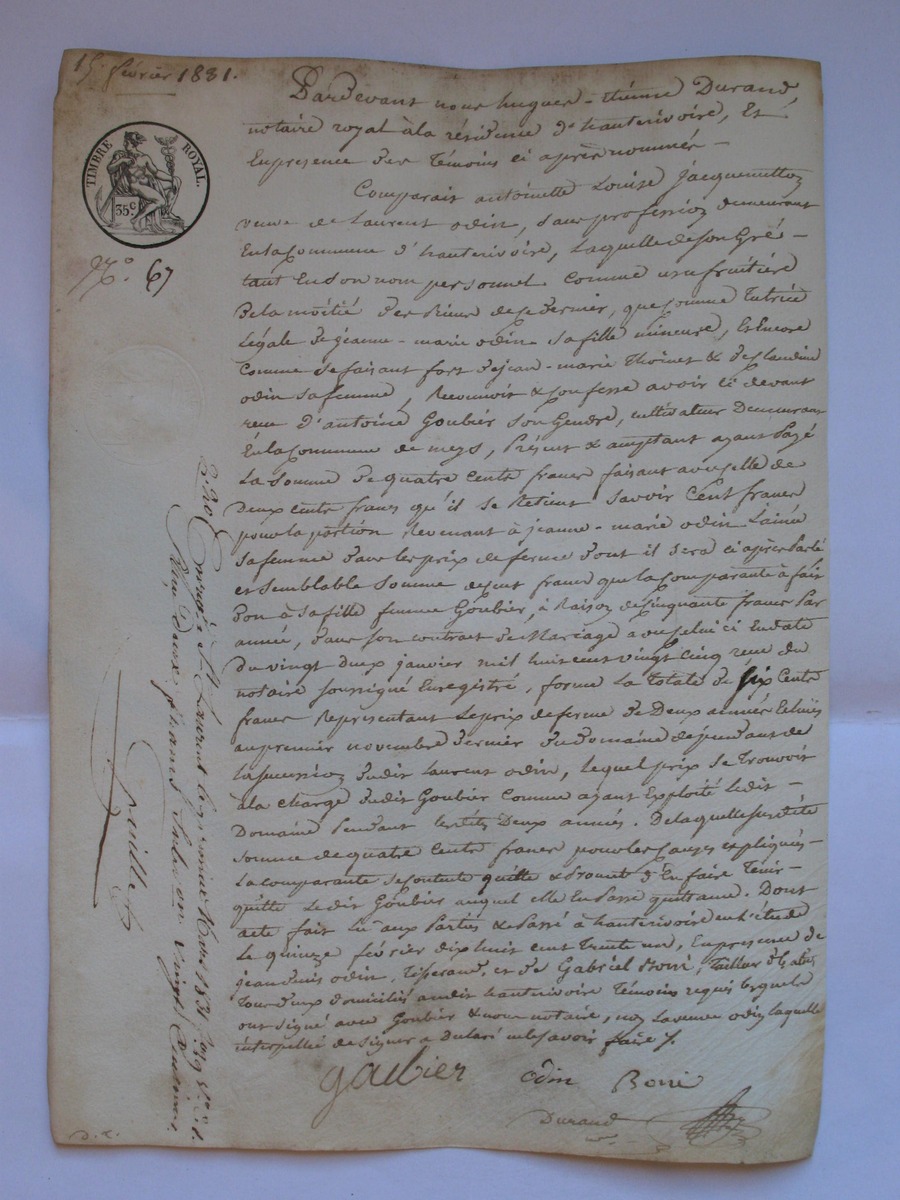 15. février 1831.
TIMBRE ROYAL.
35c
No. 67
Pardevant nous hugues-étienne Durand
notaire royal à la résidence d'hauterivoire, Et
En presence des Témoins ci après nommés -
Comparait antoinette Louise Jacquemetton
veuve de Laurent odin, sans profession demeurant
En la Commune d'hauterivoire, Laquelle de son Gré -
tant En son nom personnel Comme usufruitière
De la moitié des Biens de ce dernier, que comme Tutrice
Légale de jeanne-marie odin sa fille mineure, Et Encore
comme se faisant fort de jean-marie Thoinet & de Claudine
odin sa femme, Reconnoit & Confesse avoir ci devant
reçu d'antoine Goubier son Gendre, cultivateur Demeurant
En la Commune de meys, Présent & acceptant ayant Payé
La somme de quatre Cents francs faisant avec celle de
Deux cents francs qu'il se Retient savoir Cent francs
pour la portion Revenant à jeanne-marie odin Lainée
sa femme dans les prix de ferme dont il sera ci après Parlé
et Semblable Somme de cent francs que la Comparante à fait
Don à sa fille femme Goubier, à Raison de Cinquante francs Par
année, dans son contrat de Mariage avec celui ci En date
Du vingt deux janvier mil huit cent vingt cinq reçu du
notaire soussigné Enregistré, forme La Totale de Six Cents
francs Représentant Le prix de ferme de Deux années Echues
au premier novembre dernier du Domaine dependant de
la succession dudit Laurent odin, lequel prix se Trouvoit
à la charge dudit Goubier Comme ayant Exploité Ledit -
Domaine Pendant lesdites Deux années. De laquelle susdite
somme de quatre Cents francs pour les Causes expliquées -
La comparante se contente quitte & Promet d'En faire Tenir -
quitte Ledit Goubier auquel elle En Passe quittance. Dont
acte fait Lu aux Parties & Passé à hauterivoire en l'étude
Le quinze février dix huit cent Trente un, En presence de
jean denis odin, Tisserand, et de Gabriel Boni, Tailleur d'habits
Tous deux domiciliés audit hauterivoire Témoins requis lesquels
ont signé avec Goubier & nous notaire, non La veuve odin laquelle
interpellée de signer a Déclaré ne le savoir faire /.
goubier odin Boni
Durand
Enregistré à St Laurent le Mars 1831
Reçu Deux francs vingt Centimes